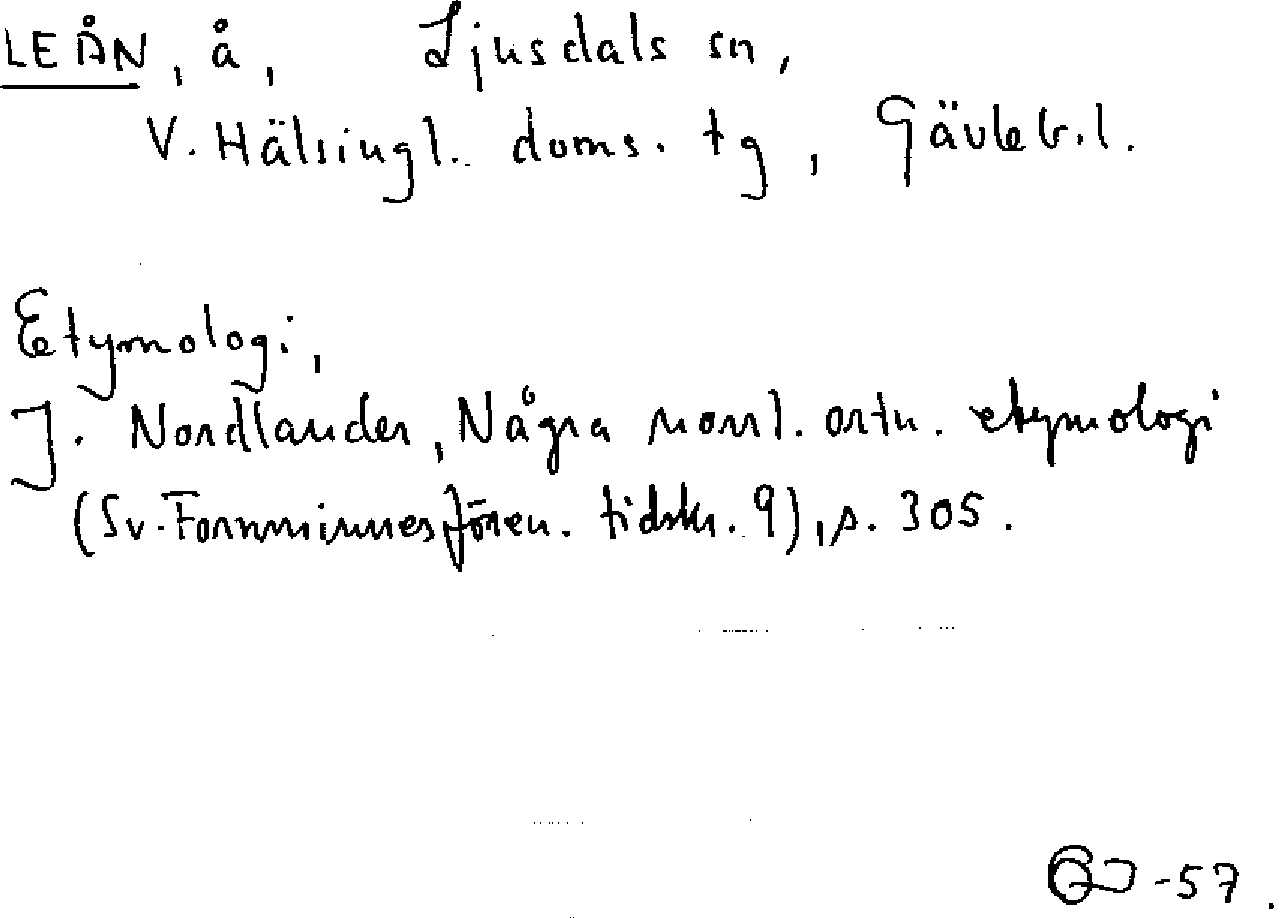 LEÅN, å, Ljusdals sn,
V. Hälsingl. doms. tg, Gävleb. l.
Etymologi,
J. Nordlander, Några norrl. ortn. etymologi
(Sv. Fornminnesfören. tidskr. 9), s. 305.
-57.